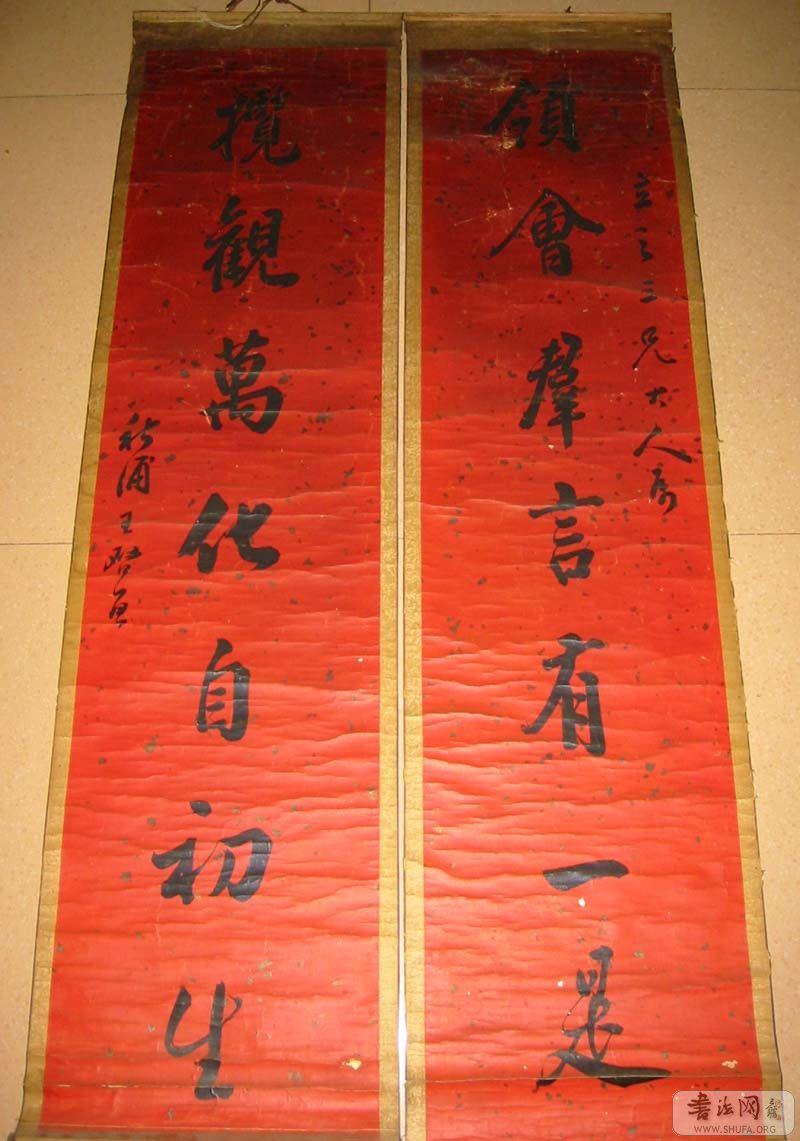 立之三兄大人属
領會羣言有一是
攬觀萬化自初生
秋浦王啓
書法网
WWW.SHUFA.ORG